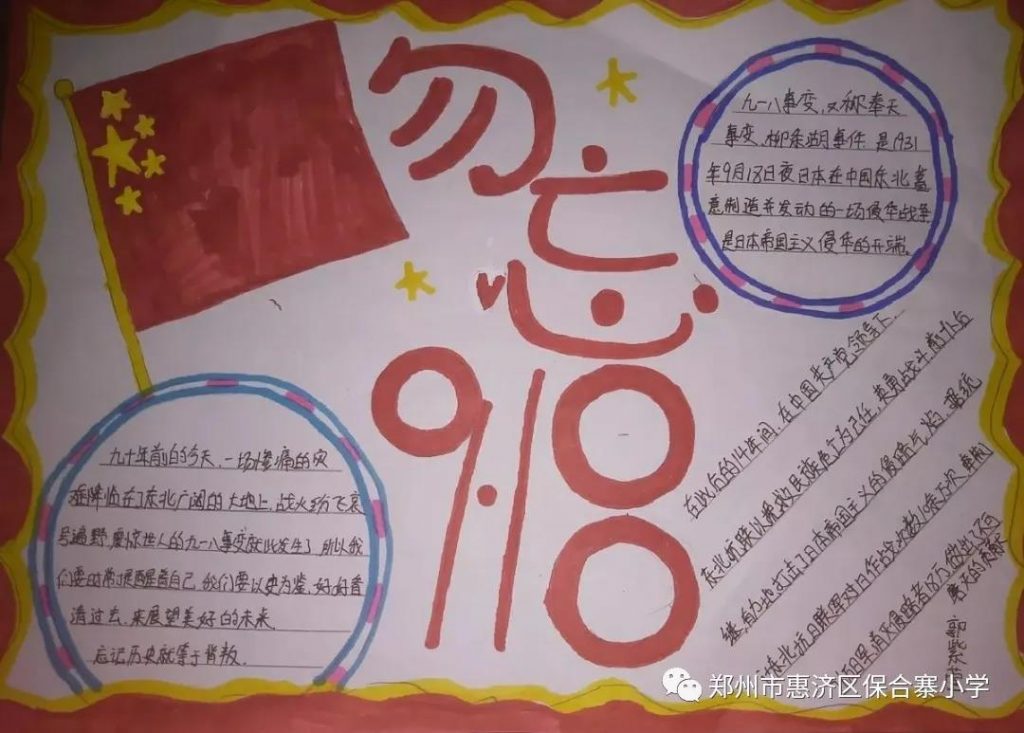 勿忘
9.18
九一八事变，又称奉天
事变、柳条湖事件 是1931
年9月18日夜日本在中国东北蓄
意制造并发动的一场侵华战争
是日本帝国主义侵华的开端。
九十年前的今天，一场惨痛的灾
难降临在了东北广阔的大地上，战火纷飞哀
号遍野，震惊世人的九一八事变就此发生了，所以我
们要时常提醒着自己，我们要以史为鉴，好好看
清过去，来展望美好的未来
忘记历史就等于背叛．
在此后的14年间，在中国共产党领导下
东北抗联以拯救民族危亡为己任，英勇战斗
继，有力地打击了日本帝国主义的侵略气焰
东北抗日联军对日作战次数
郑州市惠济区保合寨小学